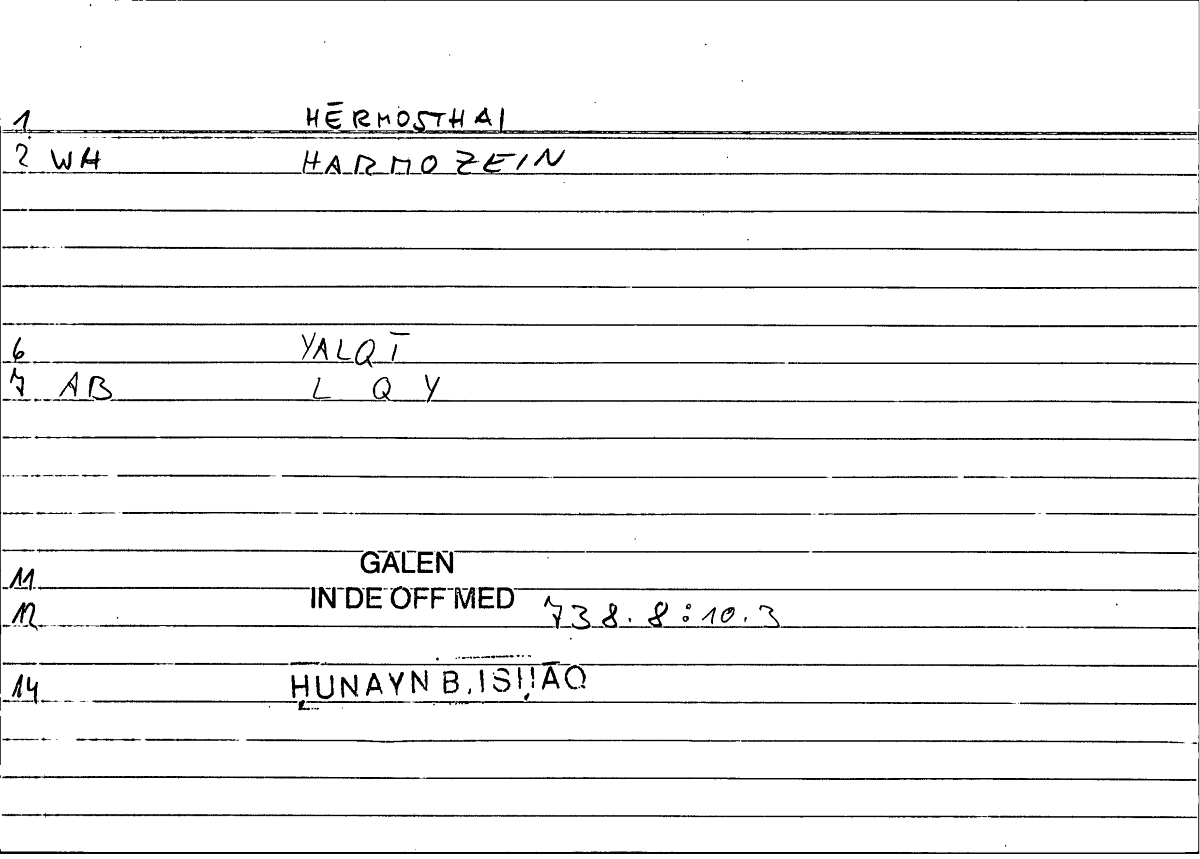 1 HĒRMOSTHAI
2 WH HARMOZEIN
6 YALQĪ
7 AB L Q Y
11 GALEN
12 IN DE OFF MED 738.8:10.3
14 ḤUNAYN B. ISḤĀQ